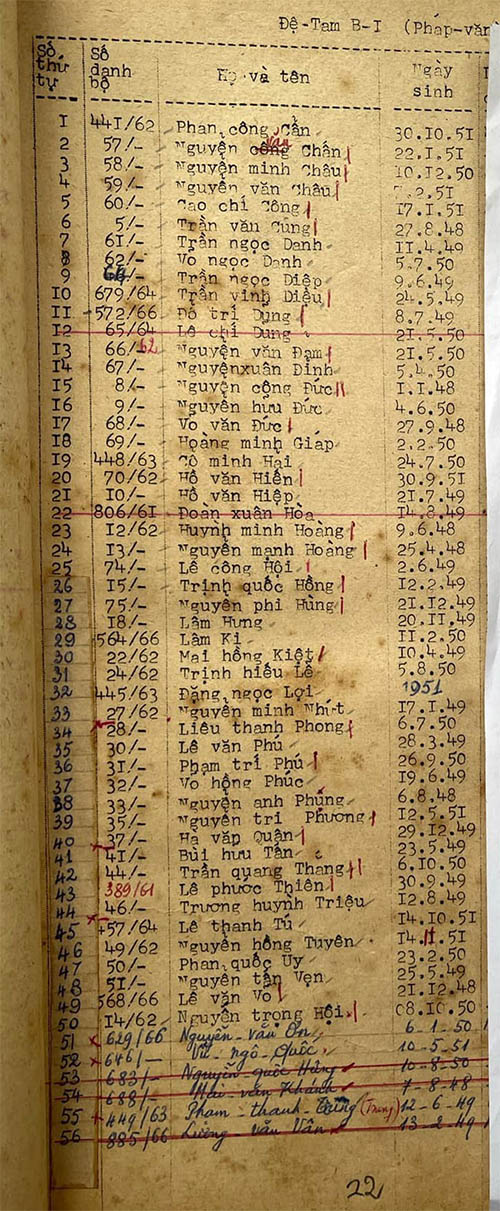 Đệ-Tam B-I (Pháp-văn
Số thứ tự Số danh bộ Họ và tên Ngày sinh
I 44I/62 Phan công Cẩn 30.I0.5I
2 57/- Nguyễn văn Chấn 22.I.5I
3 58/- Nguyễn minh Châu I0.I2.50
4 59/- Nguyễn văn Châu .2.5I
5 60/- Cao chí Công I7.I.5I
6 5/- Trần văn Cũng 27.8.48
7 6I/- Trần ngọc Danh II.4.49
8 62/- Võ ngọc Danh 5.7.50
9 64/- Trần ngọc Diệp 9.6.49
I0 679/64 Trần vinh Diệu 24.5.49
II 572/66 Đỗ trí Dũng 8.7.49
I2 65/64 Lê chí Dũng 2I.5.50
I3 66/62 Nguyễn văn Đạm 2I.5.50
I4 67/- Nguyễnxuân Đính 5.4.50
I5 8/- Nguyễn công Đức I.I.48
I6 9/- Nguyễn hữu Đức 4.6.50
I7 68/- Võ văn Đức 27.9.48
I8 69/- Hoàng minh Giáp 2.2.50
I9 448/63 Cô minh Hải 24.7.50
20 70/62 Hồ văn Hiền 30.9.5I
2I I0/- Hồ văn Hiệp 2I.7.49
22 806/6I Đoàn xuân Hòa I4.8.49
23 I2/62 Huỳnh minh Hoàng 9.6.48
24 I3/- Nguyễn mạnh Hoàng 25.4.48
25 74/- Lê công Hội 2.6.49
26 I5/- Trịnh quốc Hồng I2.2.49
27 75/- Nguyễn phi Hùng 2I.I2.49
28 I8/- Lâm Hưng 20.II.49
29 564/66 Lâm Ki II.2.50
30 22/62 Mai hồng Kiệt I0.4.49
3I 24/62 Trịnh hiếu Lễ 5.8.50
32 445/63 Đặng ngọc Lợi 1951
33 27/62 Nguyễn minh Nhựt I7.I.49
34 28/- Liêu thanh Phong 6.7.50
35 30/- Lê văn Phú 28.3.49
36 3I/- Phạm trí Phú 26.9.50
37 32/- Võ hồng Phúc I9.6.49
38 33/- Nguyễn anh Phụng 6.8.48
39 35/- Nguyễn tri Phương I2.5.5I
40 37/- Hà văn Quận 29.I2.49
4I 4I/- Bùi hữu Tấn 23.5.49
42 44/- Trần quang Thạng 6.I0.50
43 389/61 Lê phước Thiên 30.9.49
44 46/- Trương huỳnh Triệu I2.8.49
45 457/64 Lê thanh Tú I4.I0.5I
46 49/62 Nguyễn hồng Tuyên I4.11.5I
47 50/- Phan quốc Uy 23.2.50
48 5I/- Nguyễn tấn Vẹn 25.5.49
49 568/66 Lê văn Võ 2I.I2.48
50 I4/62 Nguyễn trọng Hội 08.I0.50
51 x 629/66 Nguyễn - văn Ơn 6-1-50
52 x 646/- Vũ - ngô - Quốc 10-5-51
53 683/- Nguyễn - quốc Hùng 10-8-50
54 688/- Mai - văn Khánh 7-8-48
55 449/63 Phạm - thanh - Trung (Trung) 12-6-49
56 885/66 Lương văn Vân 13-2-49
22